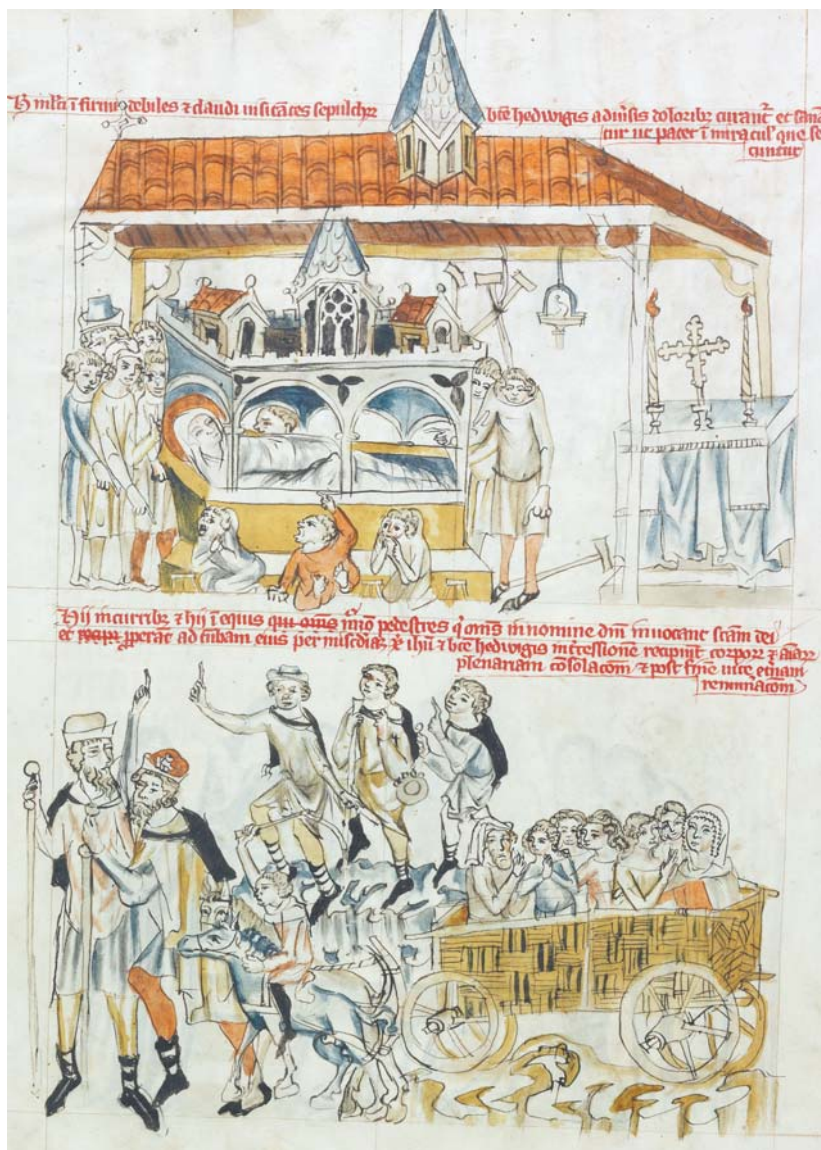 Hi mlti ĩ firmi debiles ⁊ claudi uisitãtes sepulchr bt̃e hedwigis a diũsis doloribȝ curant᷑ et sanã
tur ut patet ĩ miracul' que se
cuntur
Hij in curribȝ ⁊ hij ĩ equis qui om̃s ĩmo pedestres q̃ om̃s in nomine dm̃ inuocant scam dei
et pperãt ad tũbam eius per miscdiaȝ xp̃i ihũ ⁊ bt̃e hedwigis intcessionẽ recipiũt corpor ⁊ aĩar
plenariam cõsolacõm ⁊ post finẽ uite et̃nam
remuacõm